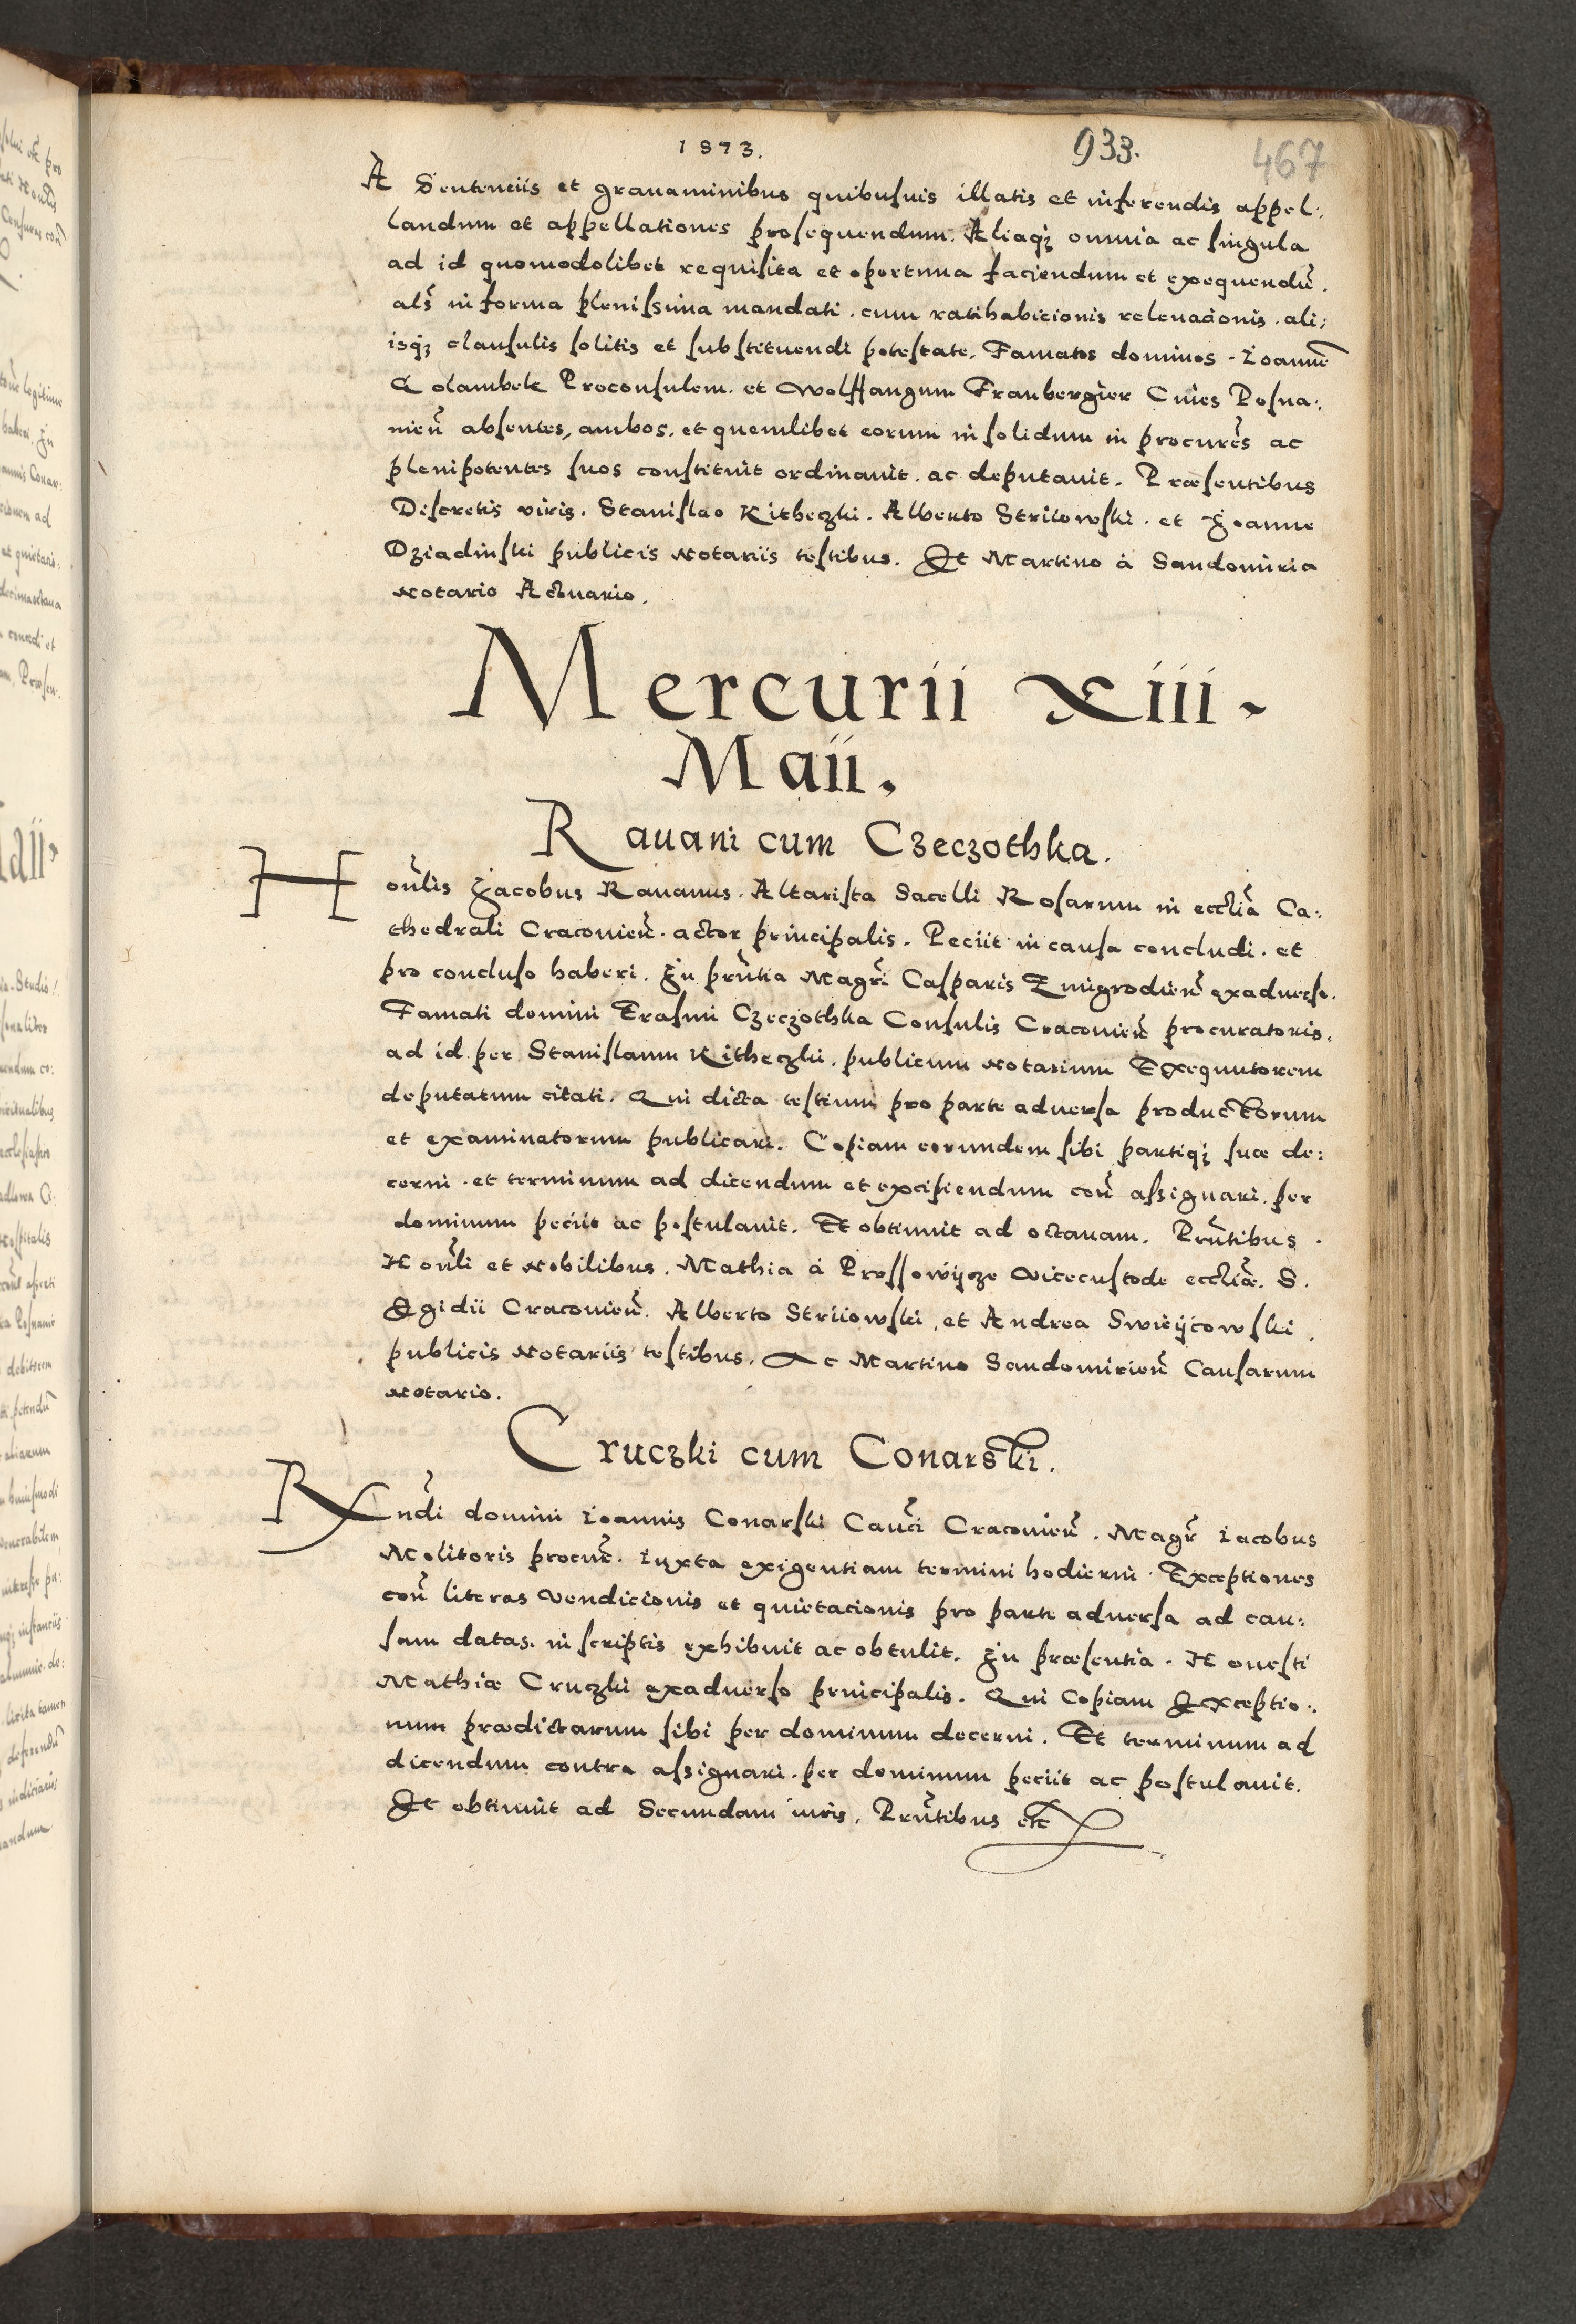 1573.
933.
467
A Sentenciis et grauaminibus quibusuis illatis et inferendis appel:
landum et appellationes prosequendum. Aliaqꝫ omnia ac singula
ad id quomodolibet requisita et oportuna faciendum et exequendũ.
als̃ in forma plenissima mandati. cum ratihabicionis releuacionis. ali:
isqꝫ clausulis solitis et substituendi potestate. Famatos dominos. Ioannẽ
Proconsulem. et Wolffangum Franbergier Ciues Posna:
nieñ absentes, ambos. et quemlibet eorum in solidum in procurẽs ac
plenipotentes suos constituit ordinauit. ac deputauit. Præsentibus
Discretis viris. Stanislao Kitheczki. Alberto Striiowski. et Joanne
Dziadinski publicis Notariis testibus. Et Martino à Sandomiria
Notario Actuario.
Mercurii Xiii.
Maii.
Rauani cum Czeczothka.
Hoñlis Jacobus Rauanus. Altarista Sacelli Rosarum in ecclĩa Ca:
thedrali Cracouieñ. actor principalis. Peciit in causa concludi. et
pro concluso haberi. In prñtia Magr̃i Casparis Zmigrodieñ exaduerso.
Famati domini Erasmi Czeczothka Consulis Cracouieñ procuratoris.
ad id per Stanislaum Kitheczki. publicum Notarium Exequutorem
deputatum citati. Qui dicta testium pro parte aduersa productorum
et examinatorum publicari. Copiam eorundem sibi partiqꝫ suæ de:
cerni. et terminum ad dicendum et excipiendum coñ assignari. per
dominum peciit ac postulauit. Et obtinuit ad octauam. Prñtibus.
Hoñli et Nobilibus. Mathia à Prossowijcze Vicecustode ecclĩæ. S.
Egidii Cracouieñ. Alberto Striiowski, et Andrea Swieijcowski.
publicis Notariis testibus. Ac Martino Sandomirieñ Causarum
Notario.
Cruczki cum Conarski.
Rñdi domini Ioannis Conarski Cañci Cracouieñ. Magr̃ Iacobus
Molitoris procur̃. Iuxta exigentiam termini hodierni. Exceptiones
coñ literas Vendicionis et quietacionis pro parte aduersa ad cau:
sam datas. in scriptis exhibuit ac obtulit. In præsentia. Honesti
Mathiæ Cruczki exaduerso principalis. Qui Copiam Exceptio:
num prædictarum sibi per dominum decerni. Et terminum ad
dicendum contra assignari. per dominum peciit ac postulauit.
Et obtinuit ad Secundam iuris. Prñtibus etc